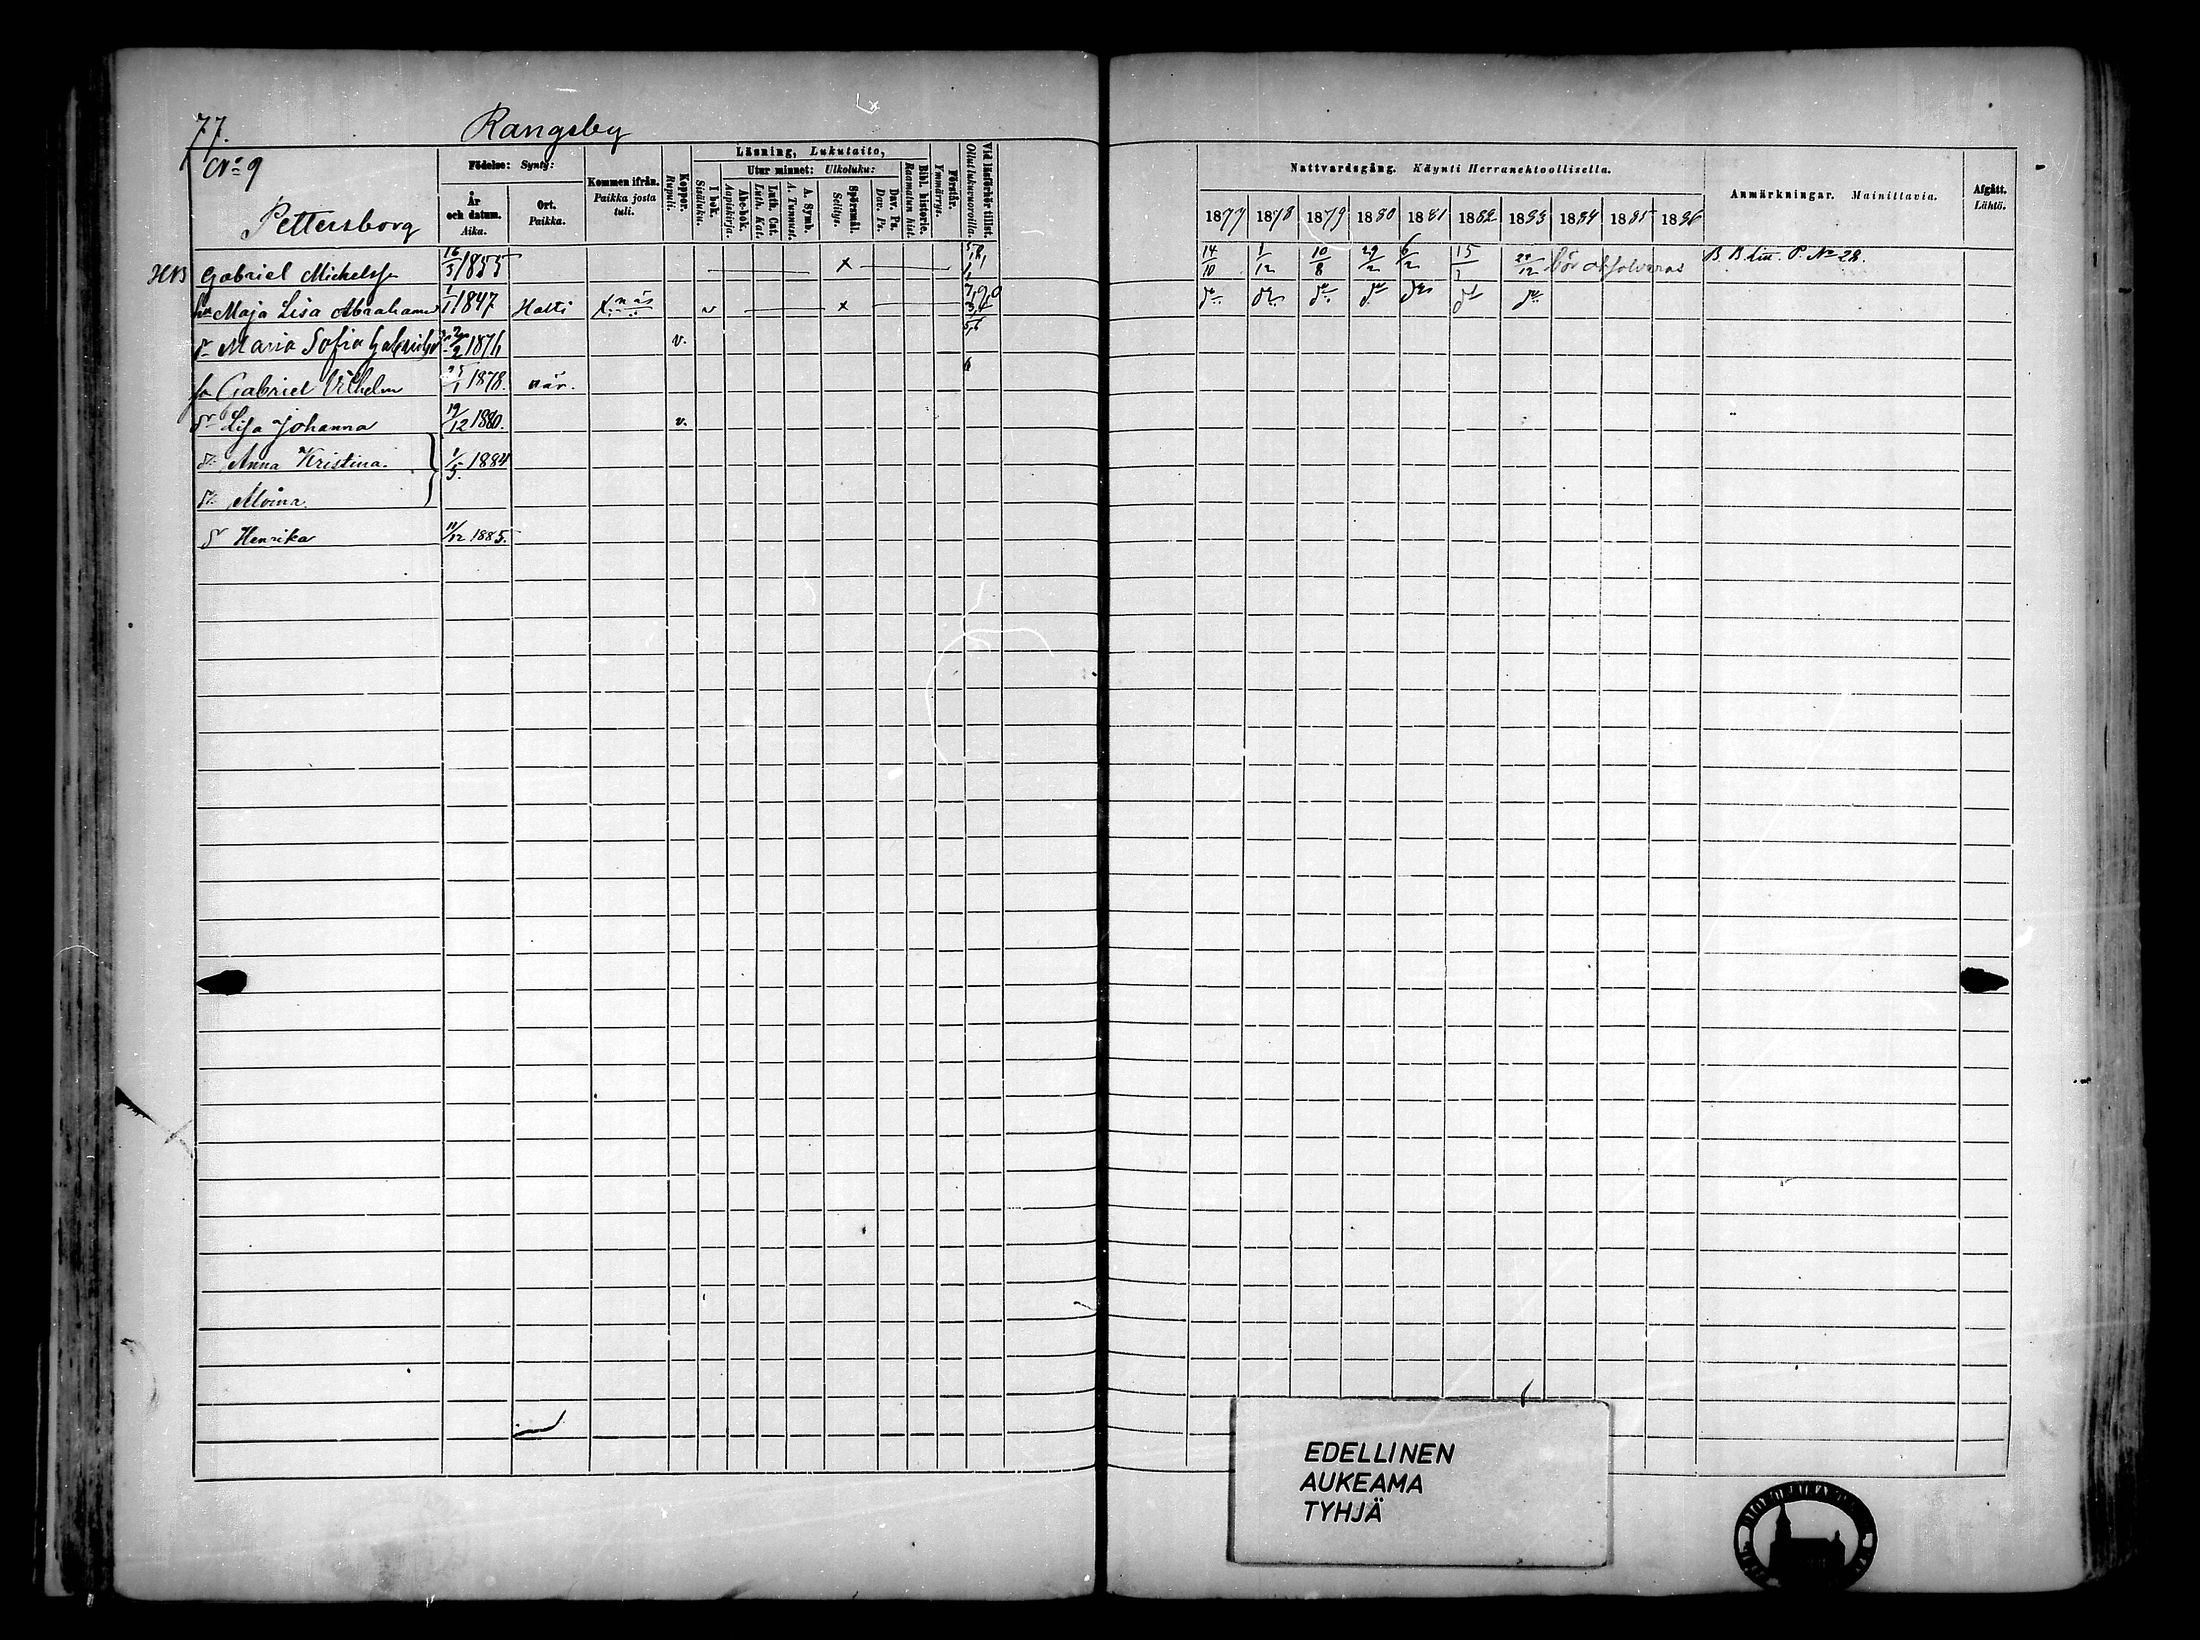 77.
Rangsby
No 9
Pettersborg
Födelse: Synty:
År och datum. Aika.
Ort. Paikka.
Kommen ifrån. Paikka josta tuli.
Koppor. Rupuli.
Läsning, Lukutaito,
I bok. Sisäluku.
Utur minnet: Ulkoluku:
Abc-bok. Aapiskirja.
Luth. Cat. Luth. Kat.
A. Symb. A. Tunnust.
Spörsmål. Selitys.
Dav. Ps. Dav. Ps.
Bibl. historie. Raamatun hist.
Förstår. Ymmärrys.
Vid läsförhör tillst. Ollut lukuvuoroilla.
Nattvardsgång. Käynti Herranehtoollisella.
1877 1878 1879 1880 1881 1882 1883 1884 1885 1886
Anmärkningar. Mainittavia.
Afgått. Lähtö.
Gabriel Michelss 16/3 1855 x 14/10 1/12 10/8 29/2 6/2 15/1 bör absolveras B. B. litt. P. No 28.
Maja Lisa Abrahamsd 1/1 1847 Halti v x
dr Maria Sofia Gabrielsd 1876 v.
Gabriel Vilhelm 25/1 1878. när.
dr Lisa Johanna 19/12 1880. v.
dr Anna Kristina. 1/5. 1884
dr Alvina.
dr Henrika 11/12 1885.
EDELLINEN
AUKEAMA
TYHJÄ